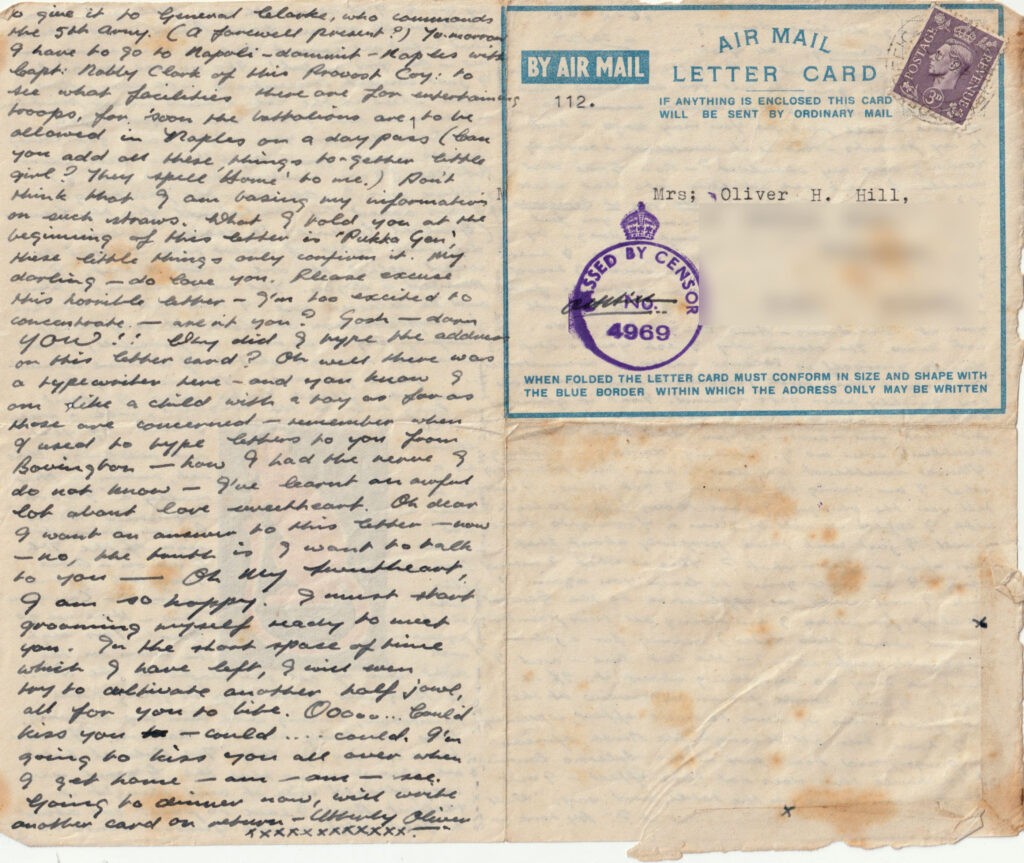 to give it to General Clarke, who commands
the 5th Army. (A farewell present?) To-morrow
I have to go to Napoli - dammit - Naples with
Capt: Nobby Clark of this Provost Coy: to
see what facilities there are for entertaining
troops, for soon the battalions are to be
allowed in Naples on a day pass (Can
you add all these things to-gether little
girl? They spell 'Home' to me.) Don't
think that I am basing my information
on such straws. What I told you at the
beginning of this letter is 'Pukka Gen',
these little things only confirm it. My
darling - do love you. Please excuse
this horrible letter - I'm too excited to
concentrate. - are'nt you? Gosh - darn
YOU!! Why did I type the address
on this letter card? Oh well there was
a typewriter here - and you know I
am like a child with a toy as far as
those are concerned - remember when
I used to type letters to you from
Bovington - how I had the nerve I
do not know - I've learnt an awful
lot about love sweetheart. Oh dear
I want an answer to this letter - now
- no, the truth is I want to talk
to you — Oh My sweetheart,
I am so happy. I must start
grooming myself ready to meet
you. In the short space of time
which I have left, I will even
try to cultivate another half jowl,
all for you to bite. Ooooo... Could
kiss you - could .... could. I'm
going to kiss you all over when
I get home - am - am - see.
Going to dinner now, will write
another card on return - Utterly Oliver
xxxxxxxxxxxx.
BY AIR MAIL
AIR MAIL
LETTER CARD
IF ANYTHING IS ENCLOSED THIS CARD
WILL BE SENT BY ORDINARY MAIL
112.
POSTAGE REVENUE
3D
Mrs; Oliver H. Hill,
PASSED BY CENSOR
No.
4969
WHEN FOLDED THE LETTER CARD MUST CONFORM IN SIZE AND SHAPE WITH
THE BLUE BORDER WITHIN WHICH THE ADDRESS ONLY MAY BE WRITTEN
x
x